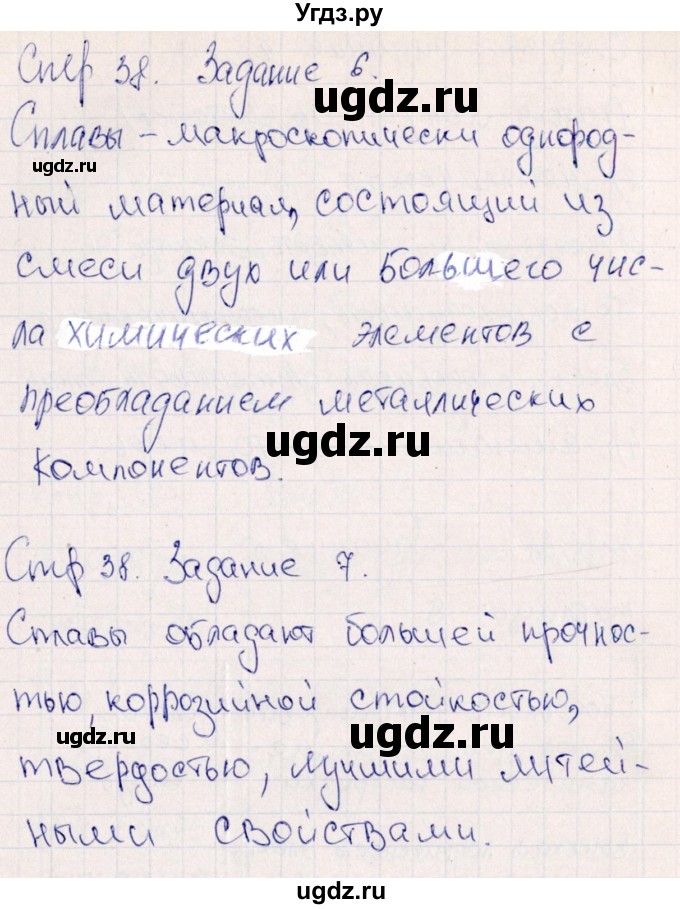 Угдз.ру
Стр 38. Задание 6.
ugdz.ru
Сплавы - макроскопически однород-
ugdz.ru
ный материал, состоящий из
смеси двух или большего чис-
ла химических элементов с
преобладанием металлических
ugdz.ru
компонентов.
Стр 38. Задание 7.
Сплавы обладают большей прочнос-
тью, коррозийной стойкостью,
ugdz.ru
ugdz.ru
твердостью, лучшими литей-
ными свойствами.
ugdz.ru